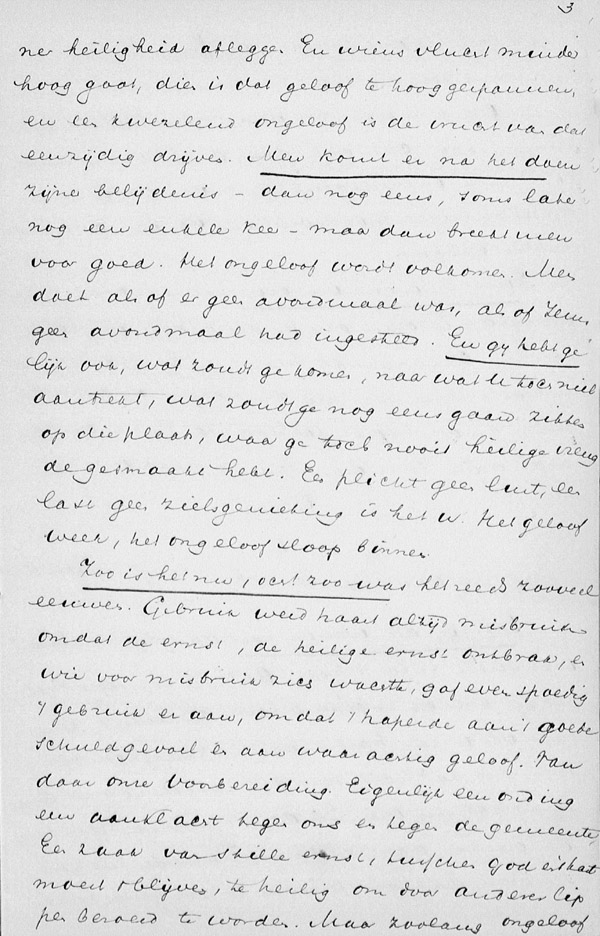 3
ner heiligheid aflegge. En wiens vlucht minder
hoog gaat, dien is dat geloof te hoog gespannen,
en een kwezelend ongeloof is de vrucht van dat
eenzijdig drijven. Men komt er na het doen
zijne belijdenis – dan nog eens, soms later
nog een enkele keer – maar dan breekt men
voor goed. Het ongeloof wordt volkomen. Men
doet als of er geen avondmaal was, als of Jezus
geen avondmaal had ingesteld. En gy hebt ge
lijk ook, wat zoudt ge komen, naar wat U toch niet
aantrekt, wat zoudt ge nog eens gaan zitten
op die plaats, waar ge toch nooit heilige vreug
de gesmaakt hebt. Een plicht geen lust, een
last geen zielsgenieting is het u. Het geloof
week, het ongeloof sloop binnen.
Zoo is het nu, ocht zoo was het reeds zooveel
eeuwen. Gebruik werd haast altyd misbruik
omdat de ernst, de heilige ernst ontbrak, en
wie voor misbruik zich wachtte, gaf even spoedig
't gebruik er aan, omdat 't haperde aan 't goede
schuldgevoel en aan waarachtig geloof. Van
daar onze Voorbereiding. Eigenlijk een onding
een aanklacht tegen ons en tegen de gemeente.
Een zaak van stille ernst, tusschen God en hart
moest 't blijven, te heilig om door anderer lip
pen beroerd te worden. Maar zoolang ongeloof